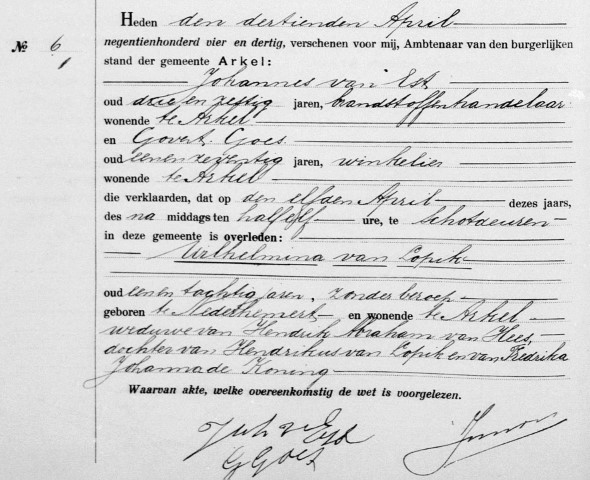 Heden den dertienden April
№ 6
negentienhonderd vier en dertig, verschenen voor mij, Ambtenaar van den burgerlijken
stand der gemeente Arkel:
Johannes van Est
oud drie en zestig jaren, brandstoffenhandelaar
wonende te Arkel
en Govert Goes
oud een en zeventig jaren, winkelier
wonende te Arkel
die verklaarden, dat op den elfden April dezes jaars,
des na middags ten half elf ure, te Schotdeuren
in deze gemeente is overleden:
Wilhelmina van Lopik
oud een en tachtig jaren, zonder beroep
geboren te Nederhemert en wonende te Arkel
weduwe van Hendrik Abraham van Hees,
dochter van Hendrikus van Lopik en van Fredrika
Johanna de Koning
Waarvan akte, welke overeenkomstig de wet is voorgelezen.
G Goes